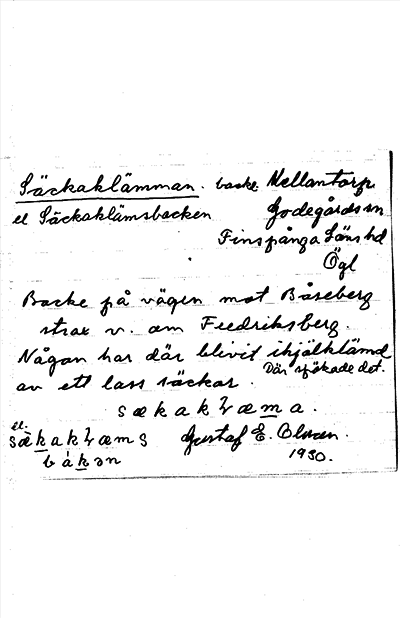 Säckaklämman. backe. Mellantorp.
el Säckaklämsbacken Godegårds sn
Finspånga Läns hd
Ögl
Backe på vägen mot Båseberg
strax v. om Fredriksberg.
Någon har där blivit ihjälklämd
av ett lass säckar. Där spökade det.
sækakɬæma.
el. sækakɬæms Gustaf E.
båkən 1930.